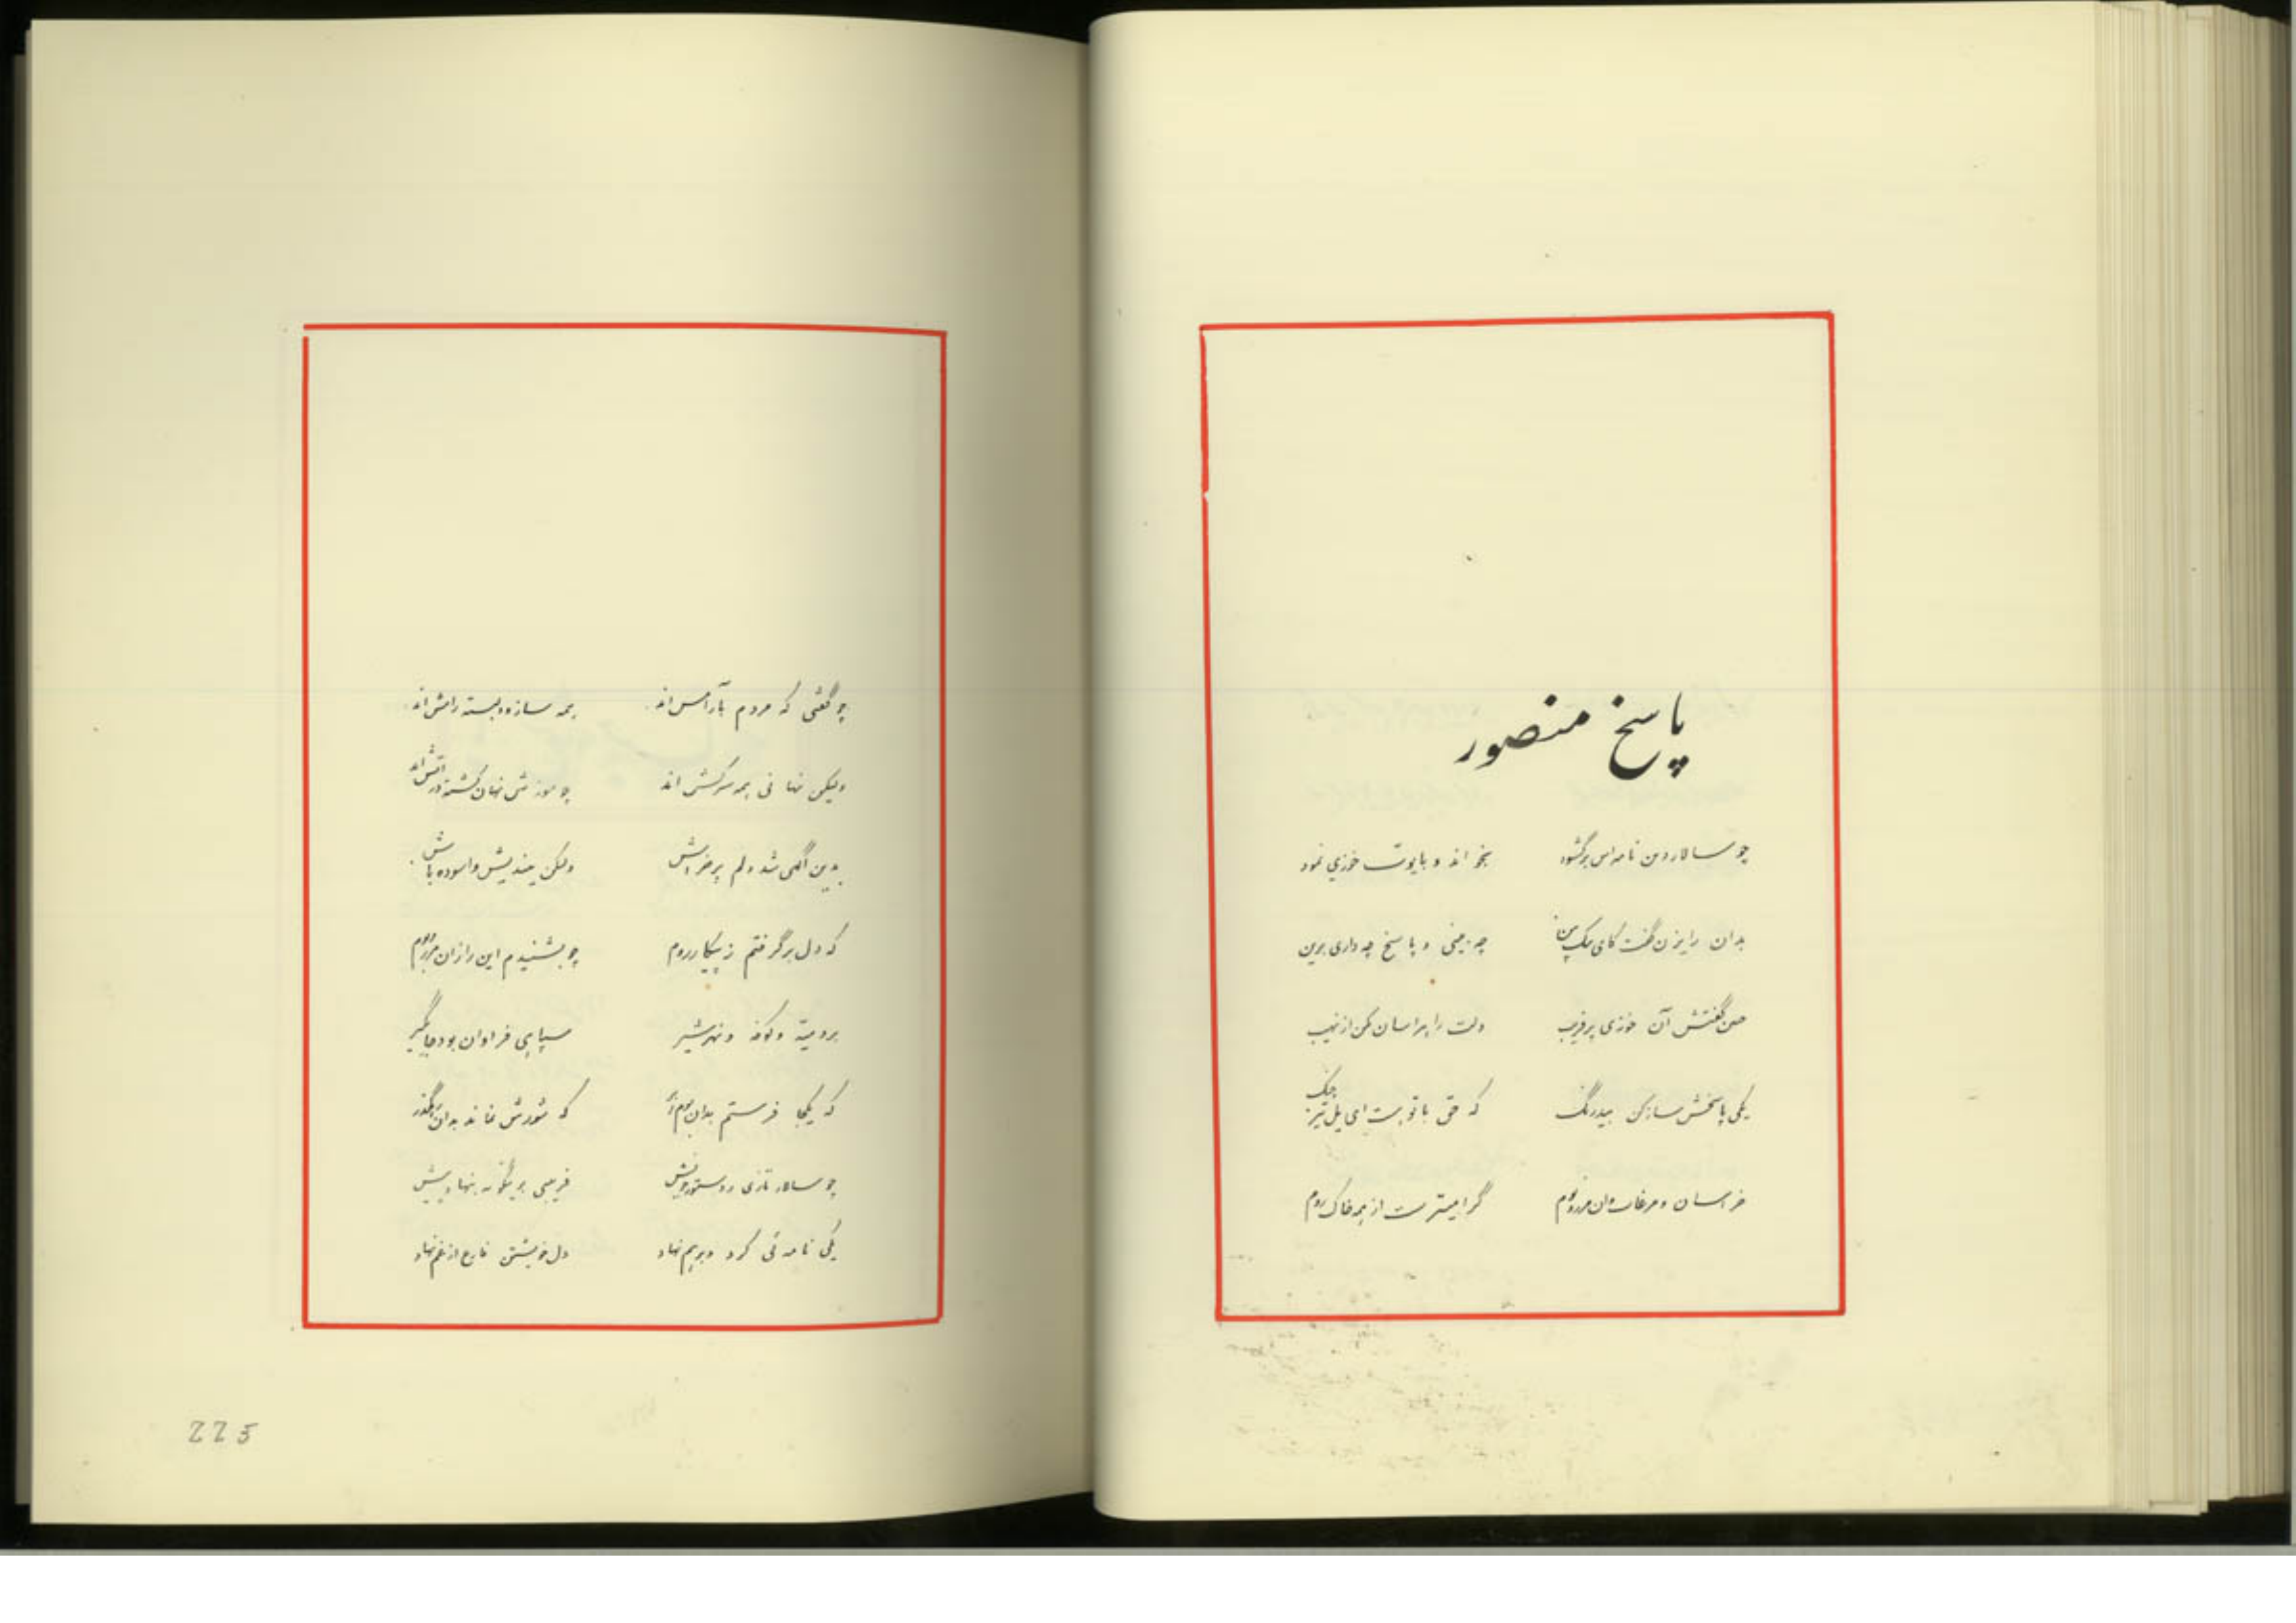 پاسخ منصور
چو سالار دین نامه‌اش برگشود بخواند و بایوب خوزی نمود
بدان رایزن گفت کای پیک بین چه بینی و پاسخ چه داری برین
چنین گفتش آن خوزی پرفریب دلت را هراسان مکن از نهیب
یکی پاسخش ساز کن بیدرنگ که حق با تو بست ای یل تیز چنگ
خراسان و مرغاب وان مرز و بوم گرامیترست از همه خاک روم
چو گفتی که مردم بآرامش‌اند همه سازه و بسته رامش‌اند
ولیکن نهانی همه سرکش‌اند چو موزش نهان گشته در آتش‌اند
بدین آگهی شد دلم پرخراش ولیکن بیندیش و آسوده باش
که دل برگرفتم ز پیکار روم چو بشنیدم این راز از آن مرز و بوم
برومیه و کوفه و نهرشیر سپاهی فراوان بود جایگیر
که یکجا فرستم بدان بوم و بر که شورش نماند بدان رهگذر
چو سالار تازی ز دستور خویش فریبی بدینگونه بنهاد پیش
یکی نامه نی کرد و برهم نهاد دل خویشتن فارغ از غم نهاد
225